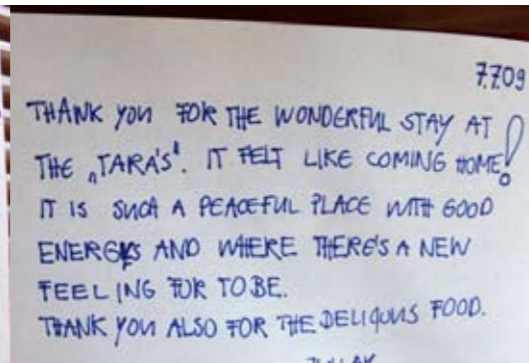 7.7.09
THANK YOU FOR THE WONDERFUL STAY AT
THE „TARA'S“. IT FELT LIKE COMING HOME!
IT IS SUCH A PEACEFUL PLACE WITH GOOD
ENERGYS AND WHERE THERE'S A NEW
FEELING FUR TO BE.
THANK YOU ALSO FOR THE DELIQUUS FOOD.